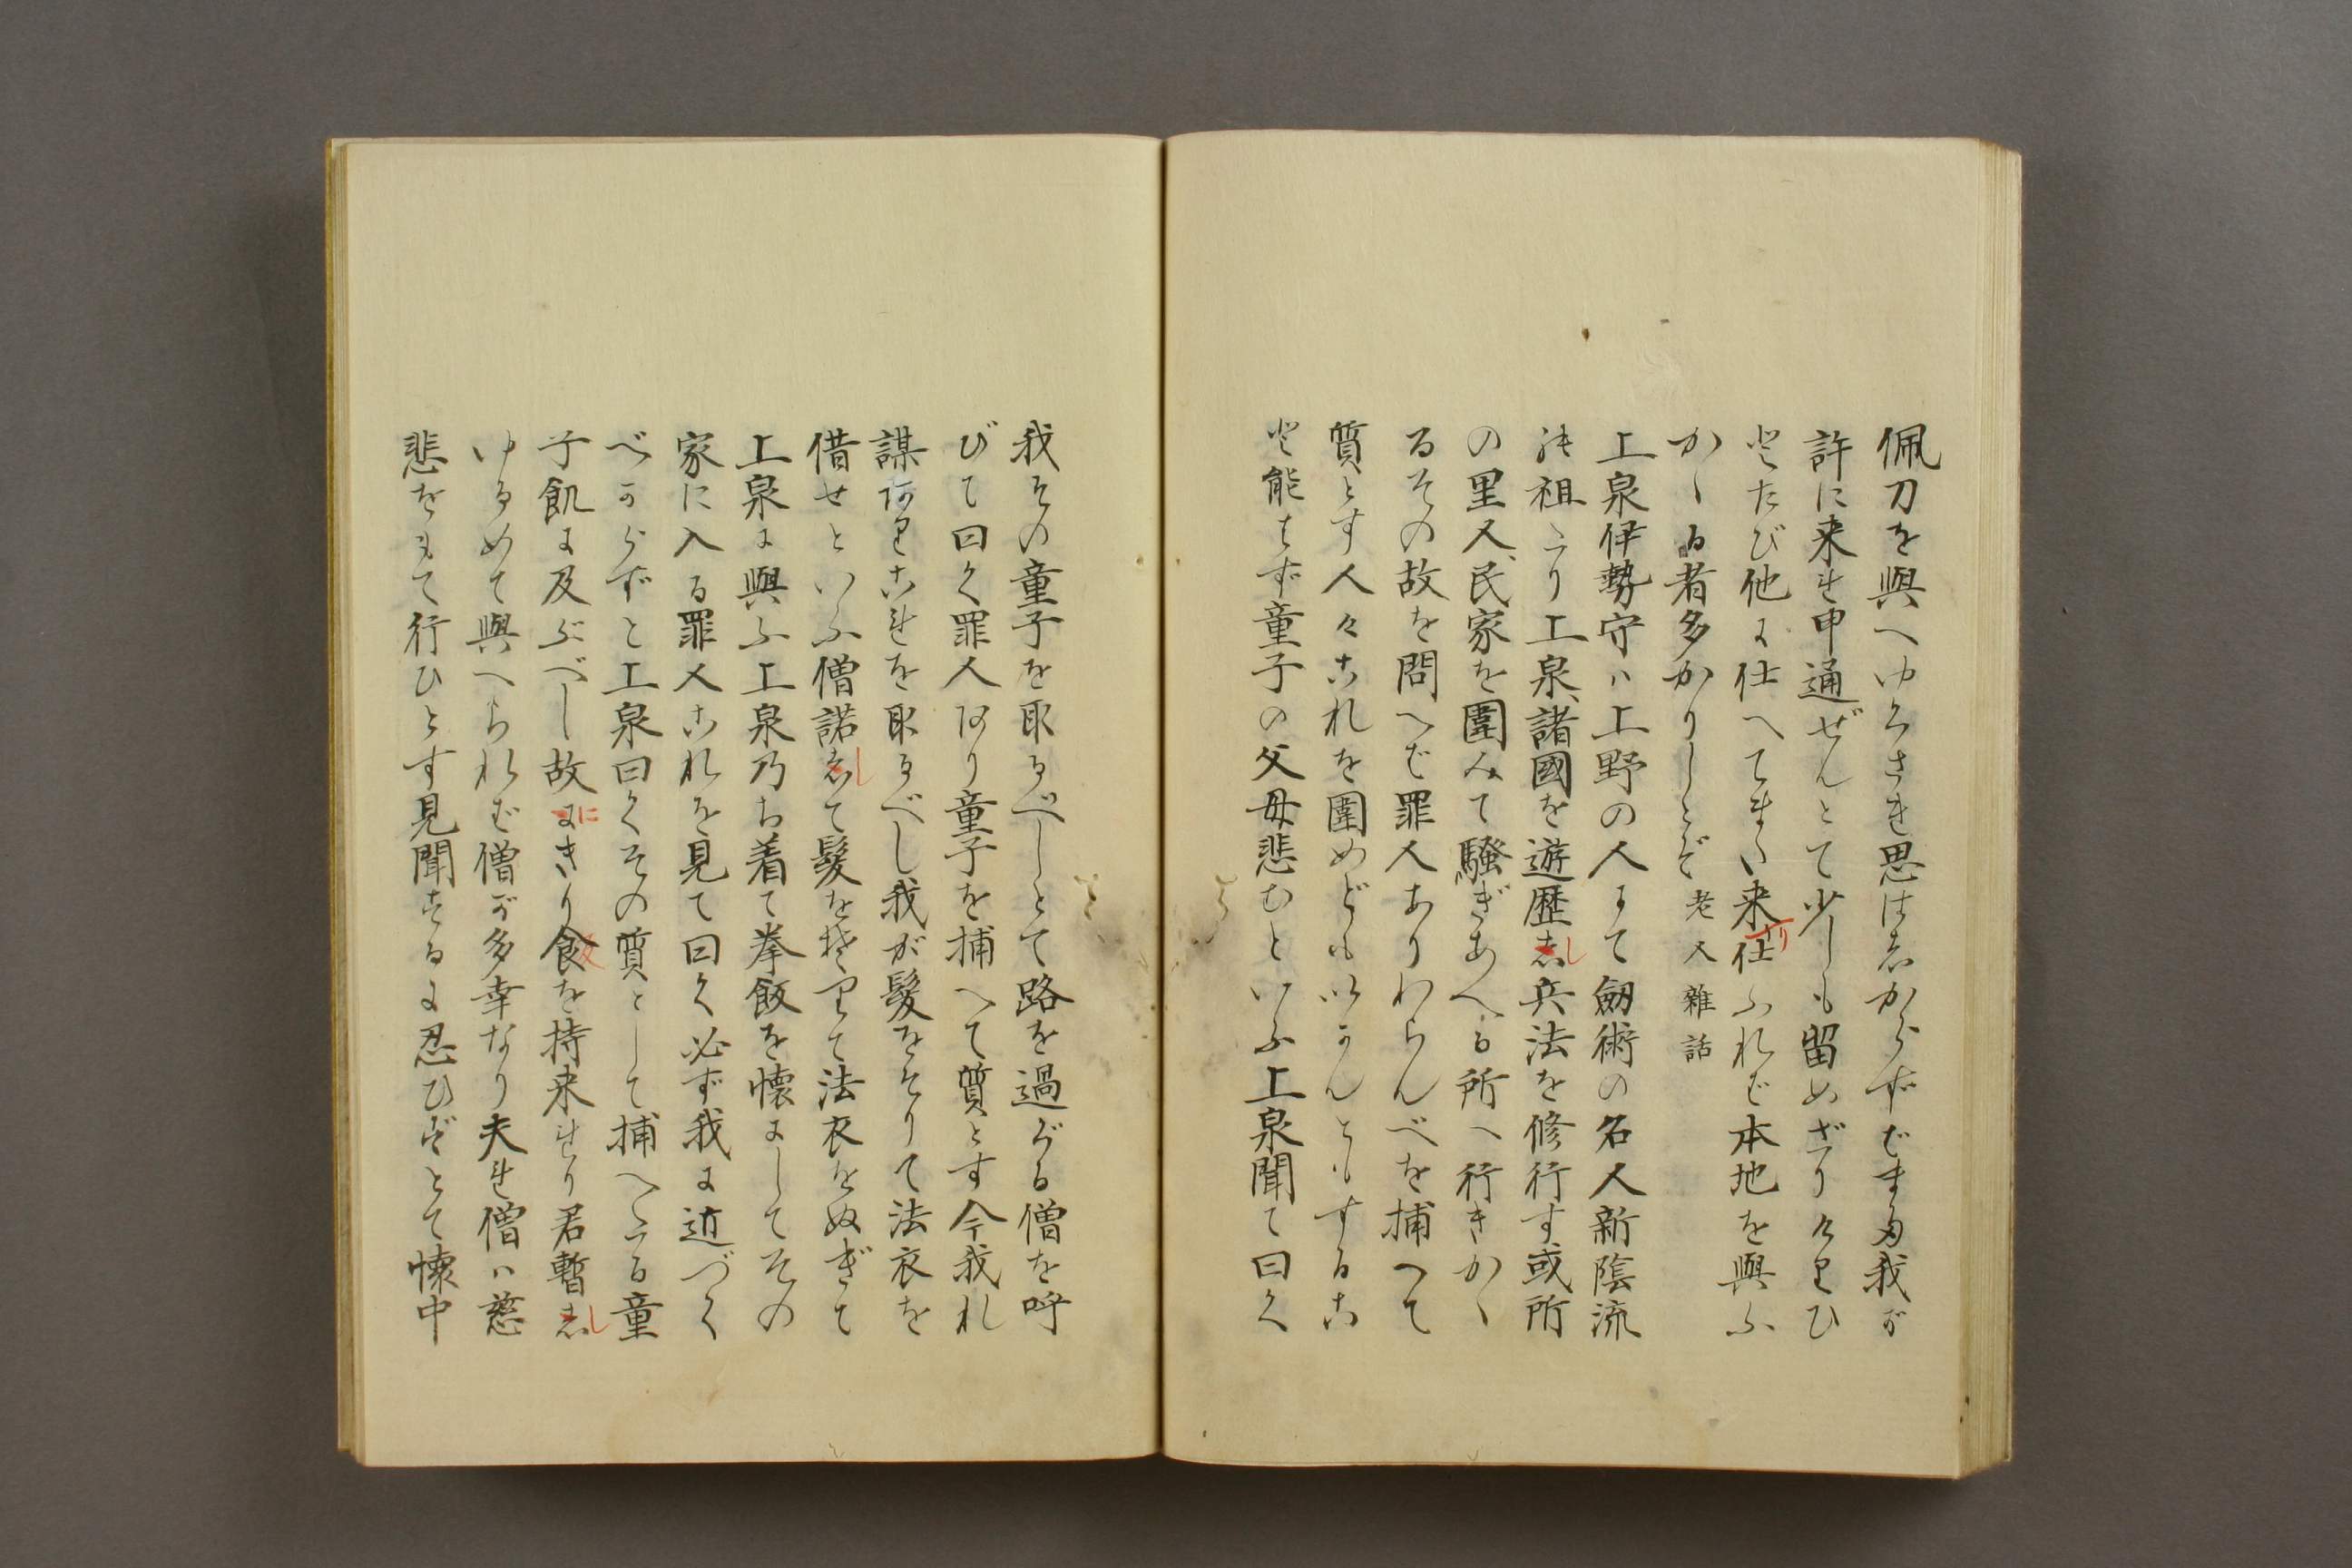 佩刀を與へゆくさき思はしからずばまた我が
許に来れ申通ぜんとて少しも留めざりけりひ
とたび他に仕へてまた来仕ふれば本地を與ふ
かゝる者多かりしとぞ 老人雜話
上泉伊勢守ハ上野の人にて劔術の名人新陰流
の祖たり上泉、諸國を遊歴し兵法を修行す或所
の里人、民家を圍みて騒ぎあへる所へ行きかゝ
るその故を問へば罪人ありわらんべを捕へて
質とす人々これを圍めども いかんともするこ
と能はず童子の父母悲むといふ上泉聞て曰く
我その童子を取るべしとて路を過ぐる僧を呼
びて曰く罪人あり童子を捕へて質とす今我れ
謀ありこれを取るべし我が髪をそりて法衣を
借せといふ僧諾して髪をそりて法衣をぬぎて
上泉に與ふ上泉乃ち着て拳飯を懐にしてその
家に入る罪人これを見て曰く必ず我に近づく
べからずと上泉曰くその質として捕へたる童
子飢に及ぶべし故ににきり飯を持来せり君暫し
ゆるめて與へられば僧が多幸なり夫れ僧ハ慈
悲をもて行ひとす見聞するに忍びずとて懐中